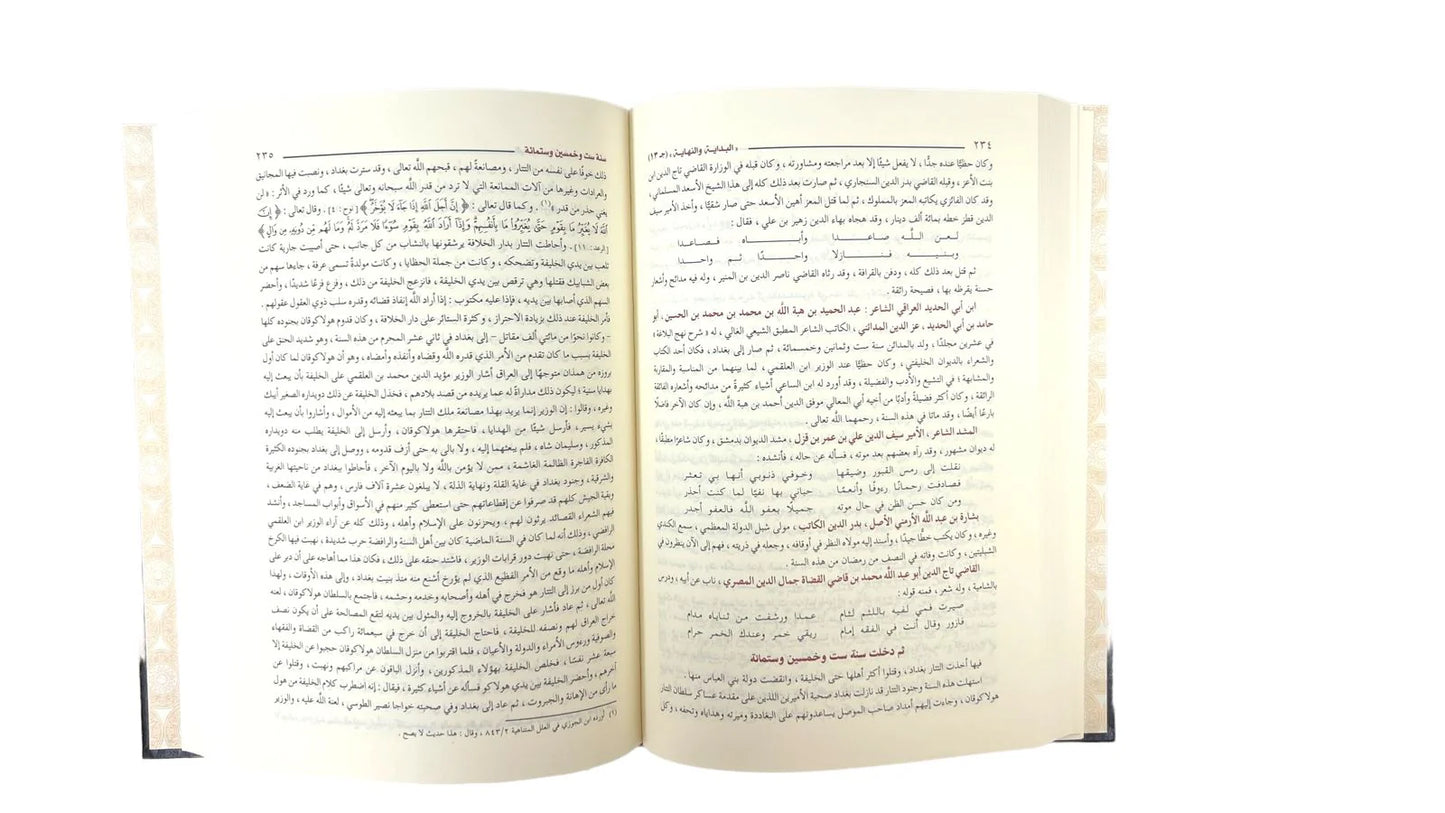 ٢٣٤
« البداية والنهاية » (جـ ١٣)
وكان حظيًّا عنده جدًّا ، لا يفعل شيئًا إلا بعد مراجعته ومشاورته ، وكان قبله في الوزارة القاضي تاج الدين ابن
بنت الأعز ، وقبله القاضي بدر الدين السنجاري ، ثم صارت بعد ذلك كله إلى هذا الشيخ الأسعد المسلماني ،
وقد كان الفائزي يكاتبه المعز بالمملوك ، ثم لما قتل المعز أهين الأسعد حتى صار شقيًّا ، وأخذ الأمير سيف
الدين قطز خطه بمائة ألف دينار ، وقد هجاه بهاء الدين زهير بن علي ، فقال :
لعن اللَّه صاعدا وأباه فصاعدا
وبنيه فنازلا واحدًا ثم واحدا
ثم قتل بعد ذلك كله ، ودفن بالقرافة ، وقد رثاه القاضي ناصر الدين بن المنير ، وله فيه مدائح وأشعار
حسنة يقرظه بها ، فصيحة رائقة .
ابن أبي الحديد العراقي الشاعر : عبد الحميد بن هبة اللَّه بن محمد بن محمد بن الحسين ، أبو
حامد بن أبي الحديد ، عز الدين المدائني ، الكاتب الشاعر المطبق الشيعي الغالي ، له « شرح نهج البلاغة »
في عشرين مجلدًا ، ولد بالمدائن سنة ست وثمانين وخمسمائة ، ثم صار إلى بغداد ، فكان أحد الكتاب
والشعراء بالديوان الخليفتي ، وكان حظيًّا عند الوزير ابن العلقمي ، لما بينهما من المناسبة والمقاربة
والمشابهة ؛ في التشيع والأدب والفضيلة ، وقد أورد له ابن الساعي أشياء كثيرةً من مدائحه وأشعاره الفائقة
الرائقة ، وكان أكثر فضيلةً وأدبًا من أخيه أبي المعالي موفق الدين أحمد بن هبة اللَّه ، وإن كان الآخر فاضلًا
بارعًا أيضًا ، وقد ماتا في هذه السنة ، رحمهما اللَّه تعالى .
المشد الشاعر ، الأمير سيف الدين علي بن عمر بن قزل ، مشد الديوان بدمشق ، وكان شاعرًا مطبقًا ،
له ديوان مشهور ، وقد رآه بعضهم بعد موته ، فسأله عن حاله ، فأنشده :
نقلت إلى رمس القبور وضيقها وخوفي ذنوبي أنها بي تعثر
فصادفت رحمانًا رءوفًا وأنعمًا حباني بها نفيًا لما كنت أحذر
ومن كان حسن الظن في حال موته جميلًا بعفو اللَّه فالعفو أجدر
بشارة بن عبد اللَّه الأرمني الأصل ، بدر الدين الكاتب ، مولى شبل الدولة المعظمي ، سمع الكندي
وغيره ، وكان يكتب خطًّا جيدًا ، وأسند إليه مولاه النظر في أوقافه ، وجعله في ذريته ، فهم إلى الآن ينظرون في
الشبليتين ، وكانت وفاته في النصف من رمضان من هذه السنة .
القاضي تاج الدين أبو عبد اللَّه محمد بن قاضي القضاة جمال الدين المصري ، ناب عن أبيه ، ودرس
بالشامية ، وله شعر ، فمنه قوله :
صيرت فمي لفيه باللثم لثام عمدا ورشفت من ثناياه مدام
فازور وقال أنت في الفقه إمام ريقي خمر وعندك الخمر حرام
ثم دخلت سنة ست وخمسين وستمائة
فيها أخذت التتار بغداد ، وقتلوا أكثر أهلها حتى الخليفة ، وانقضت دولة بني العباس منها .
استهلت هذه السنة وجنود التتار قد نازلت بغداد صحبة الأميرين اللذين على مقدمة عساكر سلطان التتار
هولاكوقان ، وجاءت إليهم أمداد صاحب الموصل يساعدونهم على البغاددة وميرته وهداياه وتحفه ، وكل
سنة ست وخمسين وستمائة
٢٣٥
ذلك خوفًا على نفسه من التتار ، ومصانعةً لهم ، قبحهم اللَّه تعالى ، وقد سترت بغداد ، ونصبت فيها المجانيق
والعرادات وغيرها من آلات الممانعة التي لا ترد من قدر اللَّه سبحانه وتعالى شيئًا ، كما ورد في الأثر : « لن
يغني حذر من قدر »(١) . وكما قال تعالى : ﴿ إِنَّ أَجَلَ اللَّهِ إِذَا جَاءَ لَا يُؤَخَّرُ ﴾ [نوح: ٤] . وقال تعالى : ﴿ إِنَّ
اللَّهَ لَا يُغَيِّرُ مَا بِقَوْمٍ حَتَّى يُغَيِّرُوا مَا بِأَنفُسِهِمْ وَإِذَا أَرَادَ اللَّهُ بِقَوْمٍ سُوءًا فَلَا مَرَدَّ لَهُ وَمَا لَهُم مِّن دُونِهِ مِن وَالٍ ﴾
[الرعد: ١١] . وأحاطت التتار بدار الخلافة يرشقونها بالنشاب من كل جانب ، حتى أصيبت جارية كانت
تلعب بين يدي الخليفة وتضحكه ، وكانت من جملة الحظايا ، وكانت مولدةً تسمى عرفة ، جاءها سهم من
بعض الشبابيك فقتلها وهي ترقص بين يدي الخليفة ، فانزعج الخليفة من ذلك ، وفزع فزعًا شديدًا ، وأحضر
السهم الذي أصابها بين يديه ، فإذا عليه مكتوب : إذا أراد اللَّه إنفاذ قضائه وقدره سلب ذوي العقول عقولهم .
فأمر الخليفة عند ذلك بزيادة الاحتراز ، وكثرة الستائر على دار الخلافة ، وكان قدوم هولاكوقان بجنوده كلها
– وكانوا نحوًا من مائتي ألف مقاتل – إلى بغداد في ثاني عشر المحرم من هذه السنة ، وهو شديد الحنق على
الخليفة بسبب ما كان تقدم من الأمر الذي قدره اللَّه وقضاه وأنفذه وأمضاه ، وهو أن هولاكوقان لما كان أول
بروزه من همذان متوجهًا إلى العراق أشار الوزير مؤيد الدين محمد بن العلقمي على الخليفة بأن يبعث إليه
بهدايا سنية ؛ ليكون ذلك مداراةً له عما يريده من قصد بلادهم ، فخذل الخليفة عن ذلك دويداره الصغير أيبك
وغيره ، وقالوا : إن الوزير إنما يريد بهذا مصانعة ملك التتار بما يبعثه إليه من الأموال ، وأشاروا بأن يبعث إليه
بشيء يسير ، فأرسل شيئًا من الهدايا ، فاحتقرها هولاكوقان ، وأرسل إلى الخليفة يطلب منه دويداره
المذكور ، وسليمان شاه ، فلم يبعثهما إليه ، ولا بالى به حتى أزف قدومه ، ووصل إلى بغداد بجنوده الكثيرة
الكافرة الفاجرة الظالمة الغاشمة ، ممن لا يؤمن باللَّه ولا باليوم الآخر ، فأحاطوا ببغداد من ناحيتها الغربية
والشرقية ، وجنود بغداد في غاية القلة ونهاية الذلة ، لا يبلغون عشرة آلاف فارس ، وهم في غاية الضعف ،
وبقية الجيش كلهم قد صرفوا عن إقطاعاتهم حتى استعطى كثير منهم في الأسواق وأبواب المساجد ، وأنشد
فيهم الشعراء القصائد يرثون لهم ، ويحزنون على الإسلام وأهله ، وذلك كله عن آراء الوزير ابن العلقمي
الرافضي ، وذلك أنه لما كان في السنة الماضية كان بين أهل السنة والرافضة حرب شديدة ، نهبت فيها الكرخ
محلة الرافضة ، حتى نهبت دور قرابات الوزير ، فاشتد حنقه على ذلك ، فكان هذا مما أهاجه على أن دبر على
الإسلام وأهله ما وقع من الأمر الفظيع الذي لم يؤرخ أشنع منه منذ بنيت بغداد ، وإلى هذه الأوقات ، ولهذا
كان أول من برز إلى التتار هو فخرج في أهله وأصحابه وخدمه وحشمه ، فاجتمع بالسلطان هولاكوقان ، لعنه
اللَّه تعالى ، ثم عاد فأشار على الخليفة بالخروج إليه والمثول بين يديه لتقع المصالحة على أن يكون نصف
خراج العراق لهم ونصفه للخليفة ، فاحتاج الخليفة إلى أن خرج في سبعمائة راكب من القضاة والفقهاء
والصوفية ورءوس الأمراء والدولة والأعيان ، فلما اقتربوا من منزل السلطان هولاكوقان حجبوا عن الخليفة إلا
سبعة عشر نفسًا ، فخلص الخليفة بهؤلاء المذكورين ، وأنزل الباقون عن مراكبهم ونهبت ، وقتلوا عن
آخرهم ، وأحضر الخليفة بين يدي هولاكو فسأله عن أشياء كثيرة ، فيقال : إنه اضطرب كلام الخليفة من هول
ما رأى من الإهانة والجبروت ، ثم عاد إلى بغداد وفي صحبته خواجا نصير الطوسي ، لعنة اللَّه عليه ، والوزير
(١) أورده ابن الجوزي في العلل المتناهية ٨٤٣/٢ ، وقال : هذا حديث لا يصح .